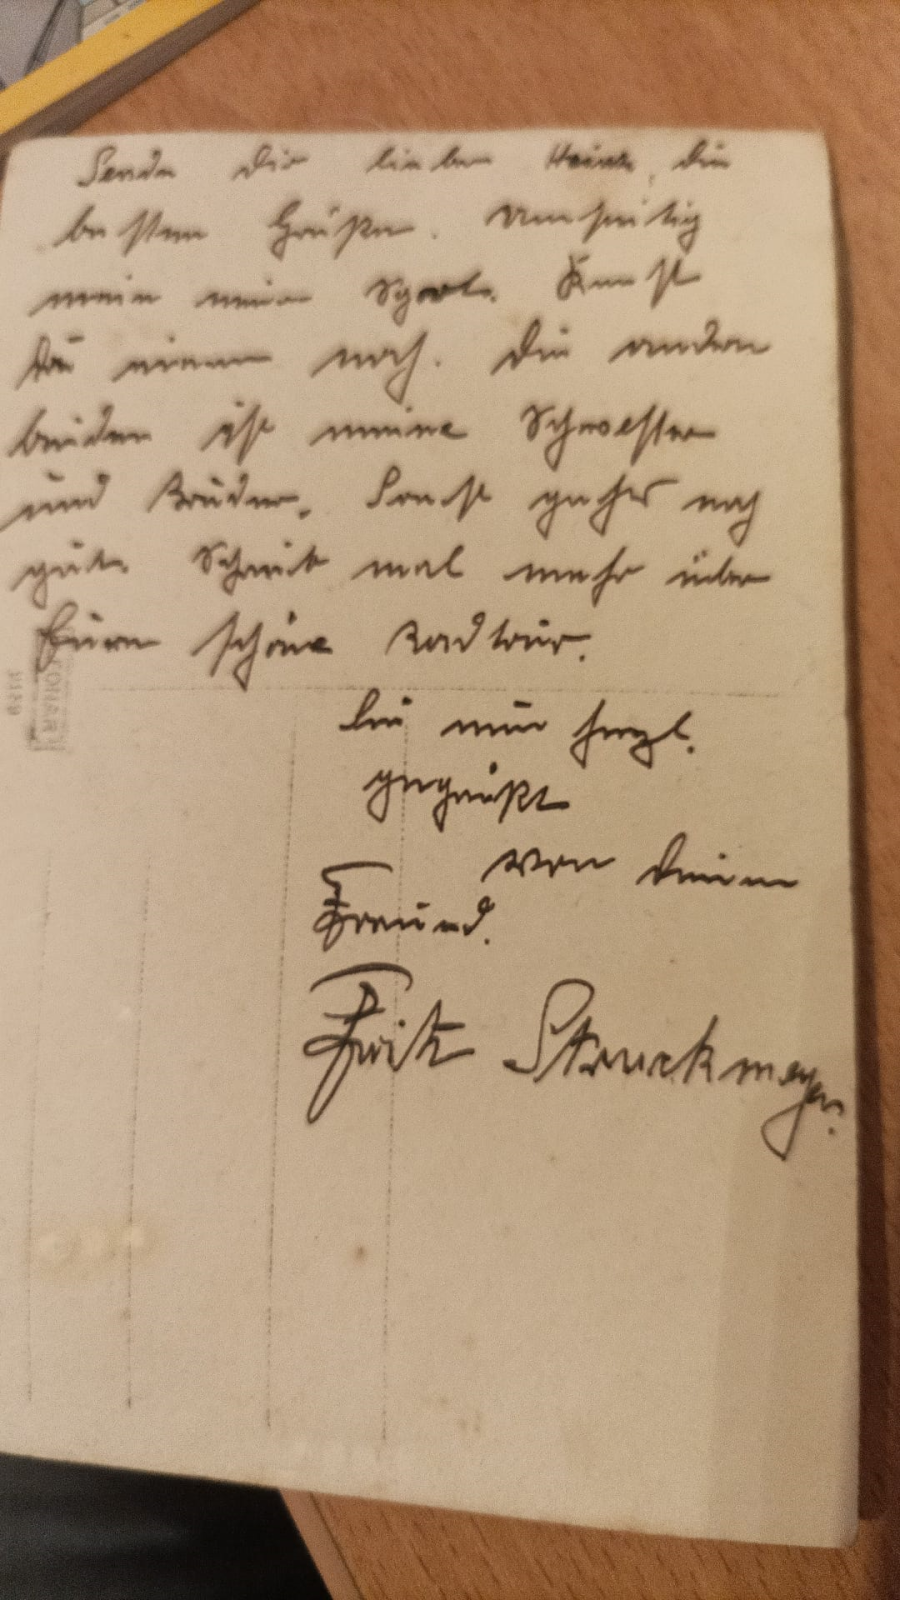 Sende Dir lieber Heinz, die
besten Grüße. Umseitig
mein neuer Sport. Kenst
Du einen noch. Die andern
beiden ist meine Schwester
und Bruder. Sonst gehts noch
gut. Schreib mal mehr über
Eure schöne Radtour.
Sei nun herzl.
gegrüßt
von Deinem
Freund.
Fritz Struckmeyer.